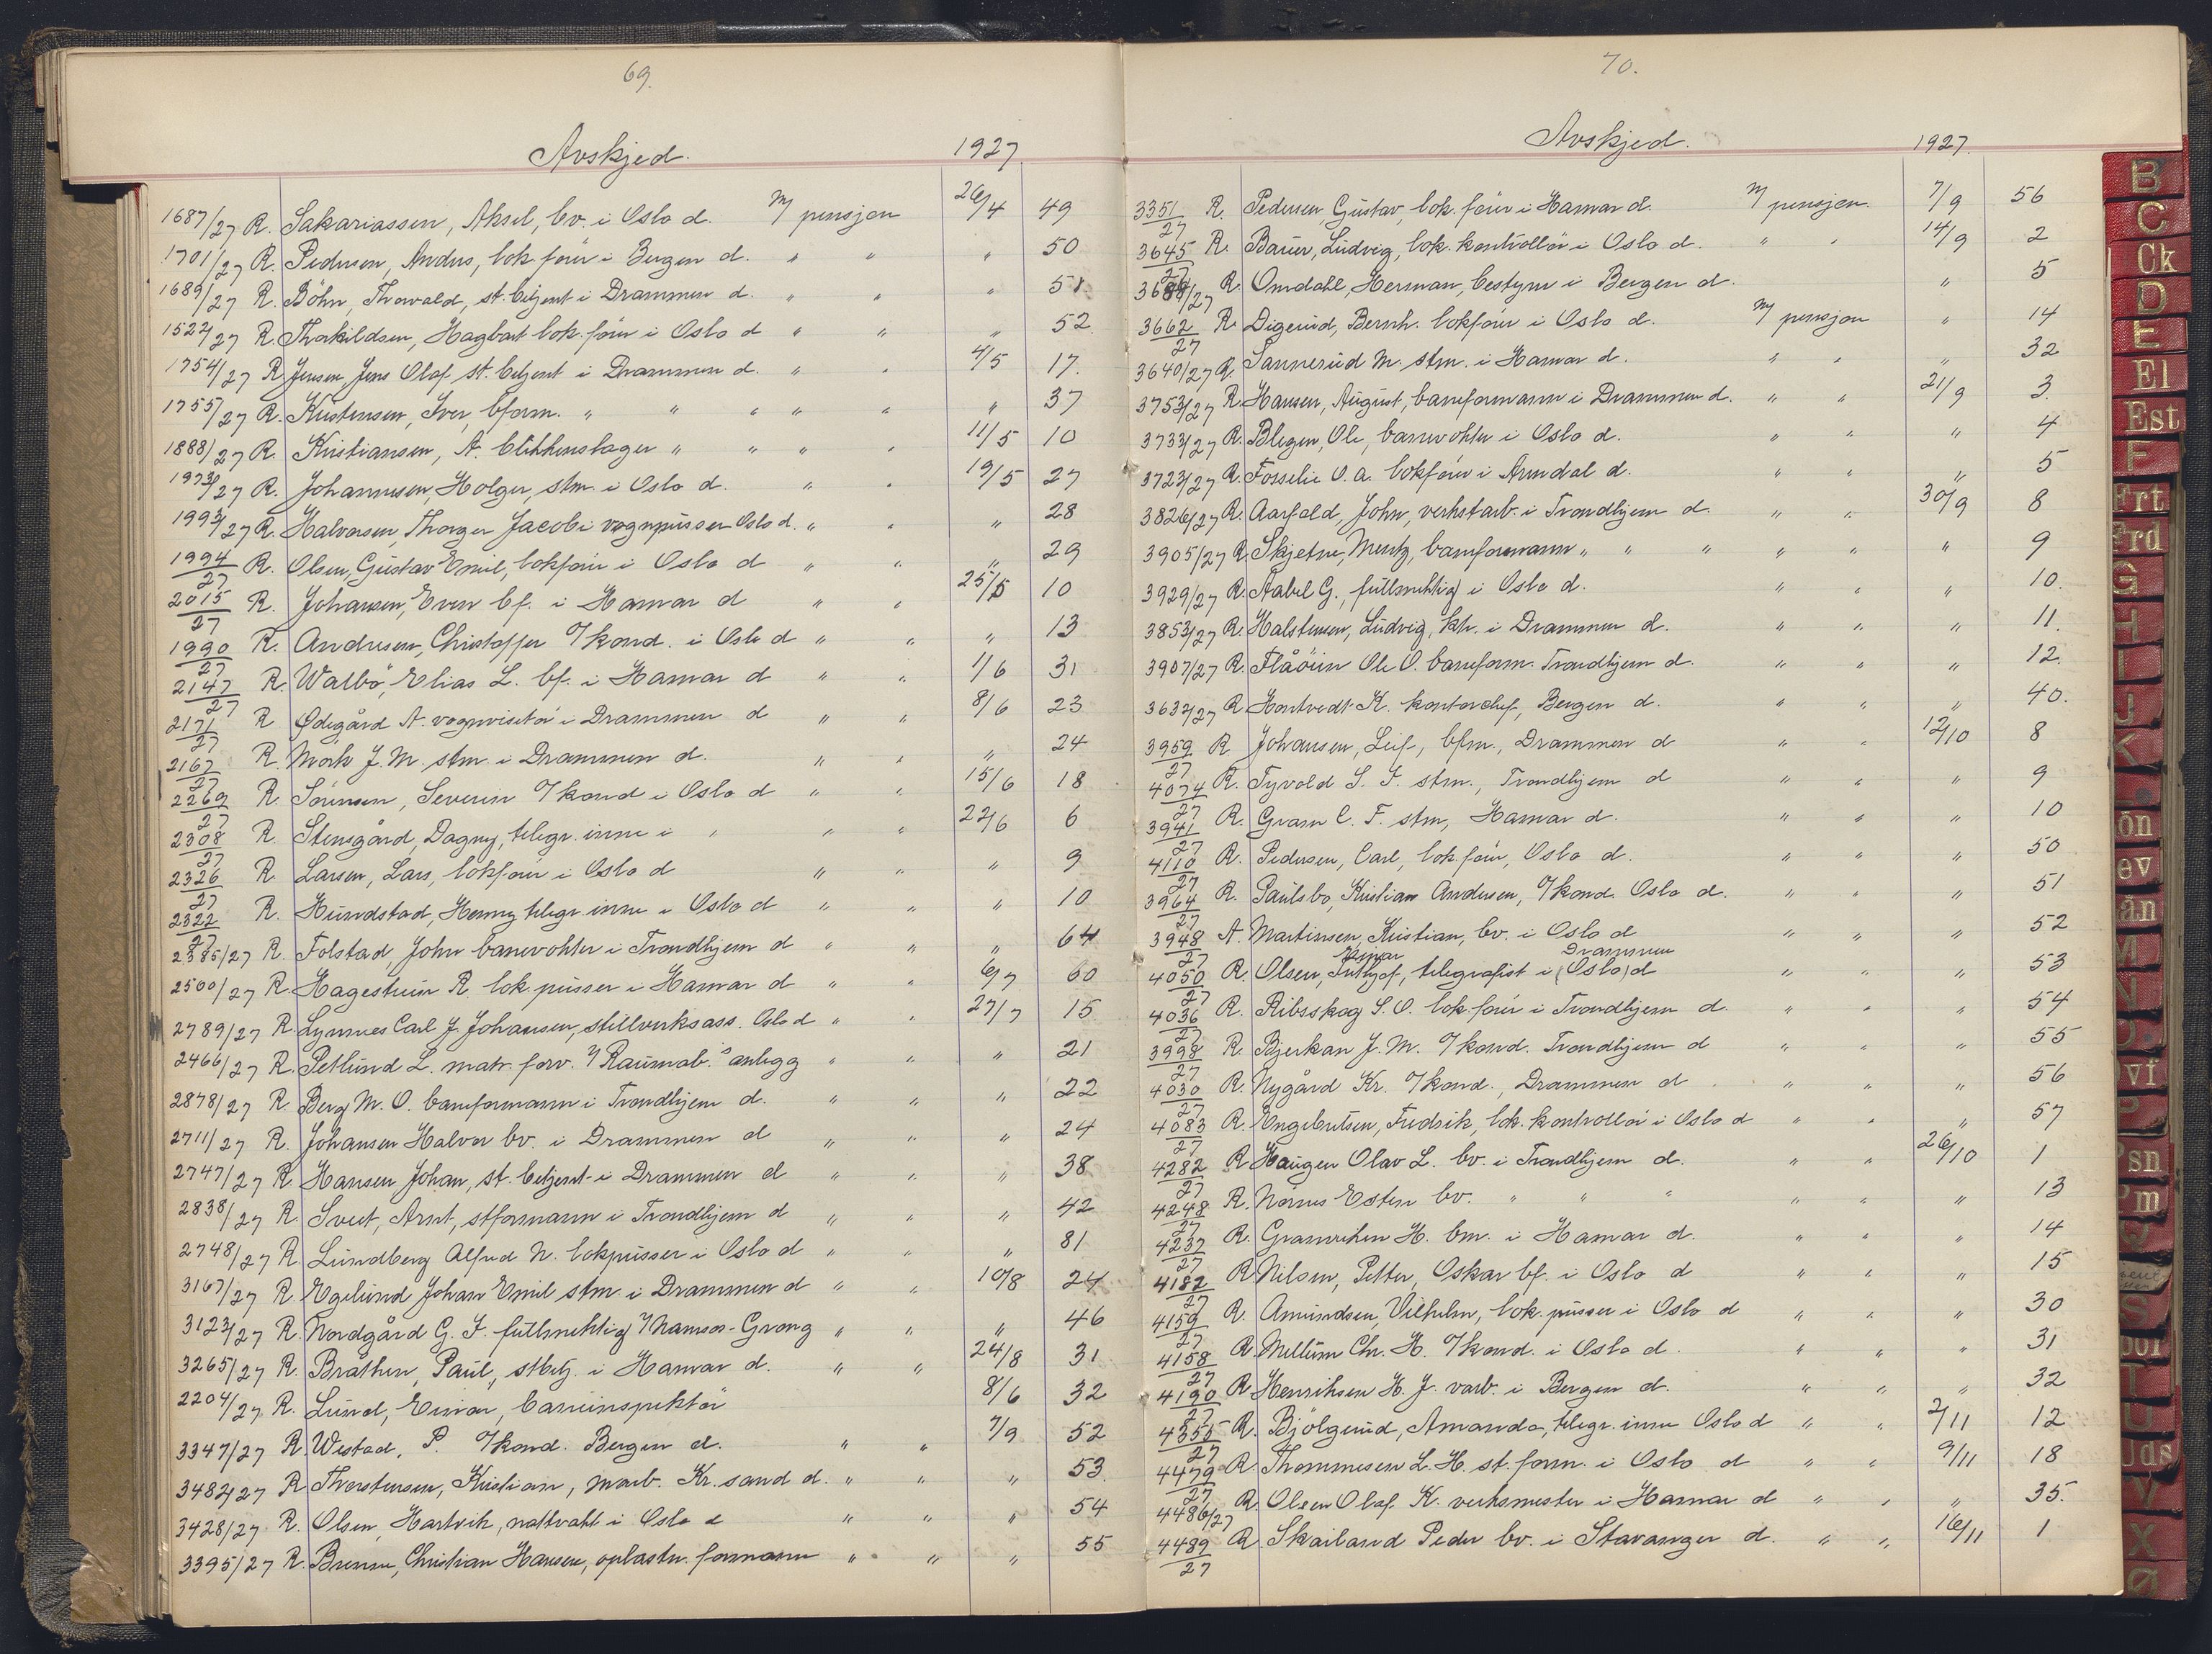 69.
Avskjed. 1927
1687/27 R. Sakariassen, Aksel, bv. i Oslo d. m/ pensjon 26/4 49
1701/27 R. Pedersen, Anders, lok.fører i Bergen d. " " " 50
1689/27 R. Böhn, Thorvald, st.betjent i Drammen d. " " " 51
1522/27 R. Thorkildsen, Hagbart lok.förer i Oslo d " " " 52.
1754/27 R. Jensen, Jens Olaf st.betjent i Drammen d. " " 4/5 17.
1755/27 R. Kristensen, Iver, bform. " " " " " " 37
1888/27 R. Kristiansen, A. blikkenslager " " " " 11/5 10
1973/27 R. Johannesen, Holger, stm. i Oslo d. " " 19/5 27
1993/27 R. Halvorsen, Thorger Jacobi vognpusser Oslo d. " " " 28
1994/27 R. Olsen, Gustav Emil, lokförer i Oslo d " " " 29
2015/27 R. Johansen, Even bf. i Hamar d " " 25/5 10
1990/27 R. Andresen, Christoffer O/kond. i Oslo d " " " 13
2147/27 R. Walbö, Elias L. bf. i Hamar d " " 1/6 31
2171/27 R Ødegård A. vognvisitör i Drammen d " " 8/6 23
2167/27 R. Mörk J. M. stm. i Drammen d. " " " 24
2269/27 R. Sörensen, Severin O/kond i Oslo d " " 15/6 18
2308/27 R. Stensgård, Dagny, telegr.inne i " " " 22/6 6
2326/27 R. Larsen, Lars, lokförer i Oslo d " " " 9
2322/27 R. Hundstad, Henny telegr.inne i Oslo d " " " 10
2385/27 R. Folstad, John banevokter i Trondhjem d " " " 64
2500/27 R. Hagestuen R. lok.pusser i Hamar d " " 6/7 60
2789/27 R. Lynnes Carl J. Johansen, stillverksass. Oslo d " " 27/7 15
2466/27 R. Petlund L. matr.forv. v/ Raumab.s anlegg " " " 21
2878/27 R. Berg M. O. baneformann i Trondhjem d. " " " 22
2711/27 R. Johansen Halvor bv. i Drammen d " " " 24
2747/27 R. Hansen Johan, st.betjent i Drammen d " " " 38
2838/27 R Sveet, Arnt, stformann i Trondhjem d " " " 42
2748/27 R. Lundberg Alfred N. lokpusser i Oslo d " " " 81
3167/27 R. Egelund Johan Emil stm. i Drammen d " " 10/8 24
3123/27 R. Nordgård G. F. fullmektig v/ Namsos-Grong " " " 46
3265/27 R. Bråthen, Paul, stbetj. i Hamar d. " " 24/8 31
2204/27 R. Lund, Einar, baneinspektör 8/6 32
3347/27 R. Westad, P. O/kond. Bergen d. " " 7/9 52
3482/27 R Thorstensen, Kristian, marb. Kr.sand d. " " " 53.
3428/27 R. Olsen, Hartvik, nattvakt i Oslo d " " " 54
3395/27 R. Brenne, Christian Hansen, oplastn.formann " " " 55
70.
Avskjed. 1927.
3351/27 R. Pedersen, Gustav, lok.förer i Hamar d. m/ pensjon. 7/9 56
3645/27 R. Bauer, Ludvig, lok.kontrollör i Oslo d. " " 14/9 2
3684/27 R Omdahl, Herman, bestyrer i Bergen d. " 5
3662/27 R. Digerud, Bernh. lokförer i Oslo d. m/ pensjon " 14
3640/27 R. Sannerud M. stm. i Hamar d. " " " 32
3753/27 R. Hansen, August, baneformann i Drammen d. " " 21/9 3.
3733/27 R. Blegen, Ole, banevokter i Oslo d. " " " 4
3723/27 R. Fosselie O. A. lokförer i Arendal d. " " " 5
3826/27 R. Aarfald, John, verkstarb. i Trondhjem d. " " 30/9 8
3905/27 R. Skjetne, Mentz, baneformann " " " " " " 9
3929/27 R. Aabel G., fullmektig i Oslo d. " " " 10.
3853/27 R. Halstensen, Ludvig, ktr. i Drammen d. " " " 11.
3907/27 R. Flåöien Ole O. baneform. Trondhjem d. " " " 12.
3632/27 R. Hontvedt K. kontorchef, Bergen d. " " " 40.
3959/27 R Johansen, Leif, bfm., Drammen d " " 12/10 8
4074/27 R. Tyvold S. F. stm., Trondhjem d " " " 9
3941/27 R. Gram C. F. stm, Hamar d. " " " 10
4110/27 R. Pedersen, Carl, lok.förer, Oslo d. " " " 50
3964/27 R. Paulsbo, Kristian Andersen, O/kond. Oslo d. " " " 51
3948/27 A. Martinsen, Kristian, bv. i Oslo d " " " 52
Drammen
4050/27 R. Olsen, Fritjof, telegrafist i (Oslo) d " " " 53
4036/27 R. Ribsskog S. O. lok.förer i Trondhjem d. " " " 54
3998/27 R. Bjerkan J. M. O/kond. Trondhjem d " " " 55
4030/27 R. Nygård Kr. O/kond., Drammen d " " " 56
4083/27 R. Engebretsen, Fredrik, lok.kontrollör i Oslo d " " " 57
4282/27 R Haugen Olav L. bv. i Trondhjem d. " " 26/10 1
4248/27 R. Nörnes Esten bv. " " " " " " 13
4237/27 R. Gramrihen H. bm. i Hamar d. " " " 14
4182/27 R Nilsen, Petter, Oskar bf. i Oslo d " " " 15
4159/27 R. Amundsen, Vilhelm, lok.pusser i Oslo d " " " 30
4158/27 R. Mellum Chr. H. O/kond. i Oslo d. " " " 31
4190/27 R Henriksen H. J. varb. i Bergen d. " " " 32
4355/27 R. Bjölgerud, Amanda, telegr.inne Oslo d " " 2/11 12
4479/27 R Thommesen L. H. st.form. i Oslo d " " 9/11 18
4486/27 R. Olsen Olaf K. verksmester i Hamar d " " " 35.
4489/27 R. Skailand Peder bv. i Stavanger d. " " 16/11 1
B
C
Ck
D
E
El
Est
F
Frt
Frd
G
H
I
J
K
ön
ev
än
M
N
O
vf
P
Psn
Pm
S
T
U
Uds
V
X
Ø